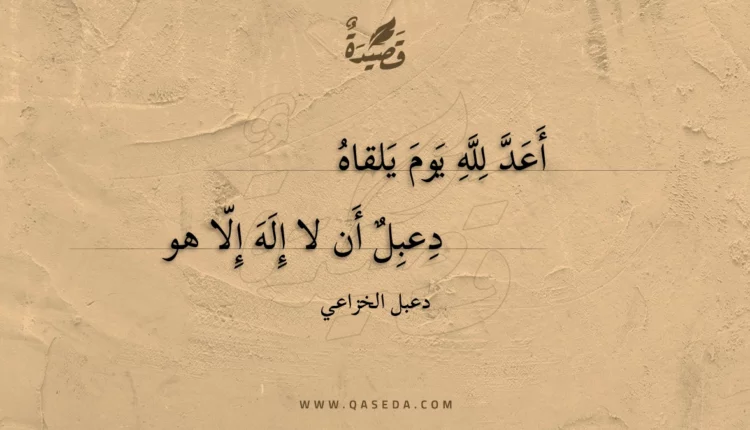 قَصِيْدَةٌ
أَعَدَّ لِلَّهِ يَومَ يَلقاهُ
دِعبِلٌ أَن لا إِلَهَ إِلّا هو
دعبل الخزاعي
WWW.QASEDA.COM